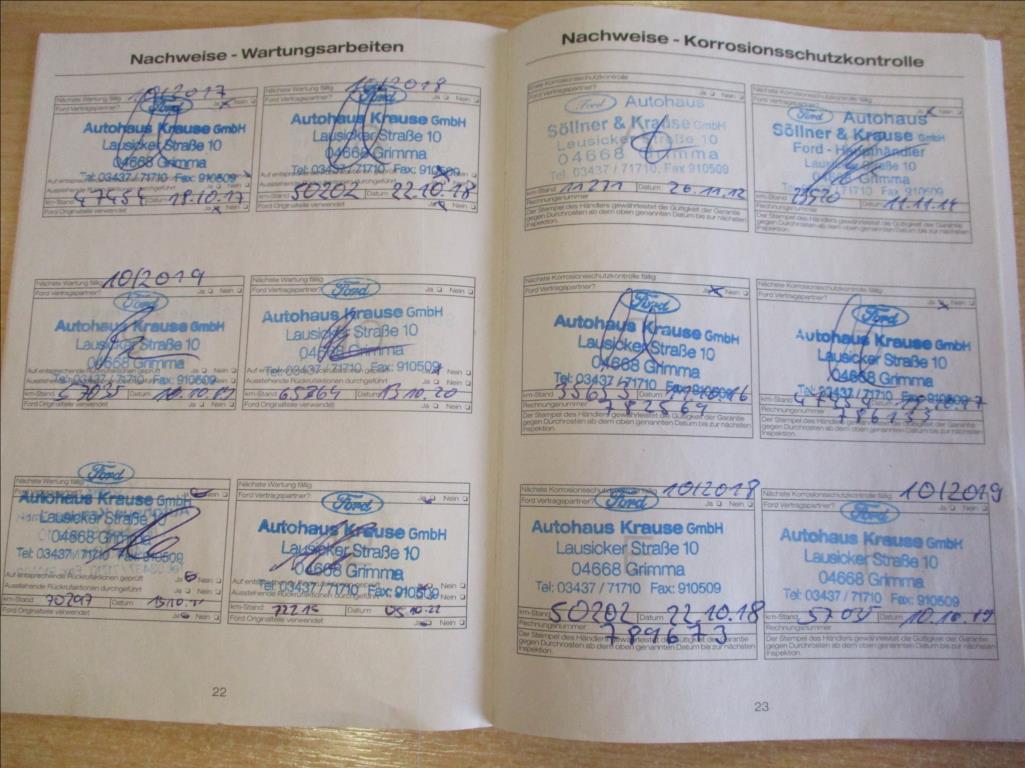 Nachweise - Wartungsarbeiten
10/2017
Nächste Wartung fällig
Ford Vertragspartner? Ja Nein
Ford
Autohaus Krause GmbH
Lausicker Straße 10
04668 Grimma
Tel: 03437/71710 Fax: 910509
Ausstehende Rückrufaktionen durchgeführt
km-Stand 47454 Datum 18.10.17
Ford Originalteile verwendet Ja Nein
10/2018
Nächste Wartung fällig
Ford Vertragspartner? Ja Nein
Ford
Autohaus Krause GmbH
Lausicker Straße 10
04668 Grimma
Tel: 03437/71710 Fax: 910509
Ausstehende Rückrufaktionen durchgeführt
km-Stand 50202 Datum 22.10.18
Ford Originalteile verwendet Ja Nein
Nächste Wartung fällig 10/2019
Ford Vertragspartner? Ja Nein
Ford
Autohaus Krause GmbH
Lausicker Straße 10
04668 Grimma
Tel: 03437/71710 Fax: 910509
Auf entsprechende Rückrufaktionen geprüft
Ausstehende Rückrufaktionen durchgeführt
km-Stand 57035 Datum 10.10.19
Ford Originalteile verwendet Ja Nein
Nächste Wartung fällig
Ford Vertragspartner? Ja Nein
Ford
Autohaus Krause GmbH
Lausicker Straße 10
04668 Grimma
Tel: 03437/71710 Fax: 910509
Auf entsprechende Rückrufaktionen geprüft
Ausstehende Rückrufaktionen durchgeführt
km-Stand 65864 Datum 13.10.20
Ford Originalteile verwendet Ja Nein
Ford
Autohaus Krause GmbH Ja Nein
Lausicker Straße 10
04668 Grimma
Tel: 03437/71710 Fax: 910509
Auf entsprechende Rückrufaktionen geprüft Ja Nein
Ausstehende Rückrufaktionen durchgeführt Ja Nein
km-Stand 70297 Datum
Ford Originalteile verwendet Ja Nein
Nächste Wartung fällig
Ford Vertragspartner? Ja Nein
Ford
Autohaus Krause GmbH
Lausicker Straße 10
04668 Grimma
Tel: 03437/71710 Fax: 910509
Ausstehende Rückrufaktionen durchgeführt
km-Stand 72215 Datum 05.10.22
Ford Originalteile verwendet Ja Nein
22
Nachweise - Korrosionsschutzkontrolle
Nächste Korrosionsschutzkontrolle
Ford Vertragspartner? Ja Nein
Ford Autohaus
Söllner & Krause GmbH
Lausicker Straße 10
04668 Grimma
km-Stand 11271 Datum 26.11.12
Rechnungsnummer
Der Stempel des Händlers gewährleistet die Gültigkeit der Garantie
gegen Durchrosten ab dem oben genannten Datum bis zur nächsten
Inspektion.
Nächste Korrosionsschutzkontrolle fällig
Ford Vertragspartner? Ja Nein
Ford Autohaus
Söllner & Krause GmbH
Ford - Haupthändler
Lausicker Straße 10
04668 Grimma
km-Stand Datum 11.11.14
Rechnungsnummer
Der Stempel des Händlers gewährleistet die Gültigkeit der Garantie
gegen Durchrosten ab dem oben genannten Datum bis zur nächsten
Inspektion.
Nächste Korrosionsschutzkontrolle fällig
Ford Vertragspartner? Ja Nein
Ford
Autohaus Krause GmbH
Lausicker Straße 10
04668 Grimma
Tel: 03437/71710 Fax: 910509
km-Stand Datum
Rechnungsnummer 782569
Der Stempel des Händlers gewährleistet die Gültigkeit der Garantie
gegen Durchrosten ab dem oben genannten Datum bis zur nächsten
Inspektion.
Nächste Korrosionsschutzkontrolle fällig
Ford Vertragspartner? Ja Nein
Ford
Autohaus Krause GmbH
Lausicker Straße 10
04668 Grimma
Tel: 03437/71710 Fax: 910509
km-Stand Datum
Rechnungsnummer 786173
Der Stempel des Händlers gewährleistet die Gültigkeit der Garantie
gegen Durchrosten ab dem oben genannten Datum bis zur nächsten
Inspektion.
Nächste Korrosionsschutzkontrolle fällig 10/2018
Ford Vertragspartner? Ja Nein
Ford
Autohaus Krause GmbH
Lausicker Straße 10
04668 Grimma
Tel: 03437/71710 Fax: 910509
km-Stand 50202 Datum 22.10.18
Rechnungsnummer 789673
Der Stempel des Händlers gewährleistet die Gültigkeit der Garantie
gegen Durchrosten ab dem oben genannten Datum bis zur nächsten
Inspektion.
Nächste Korrosionsschutzkontrolle fällig 10/2019
Ford Vertragspartner? Ja Nein
Ford
Autohaus Krause GmbH
Lausicker Straße 10
04668 Grimma
Tel: 03437/71710 Fax: 910509
km-Stand 57035 Datum 10.10.19
Rechnungsnummer
Der Stempel des Händlers gewährleistet die Gültigkeit der Garantie
gegen Durchrosten ab dem oben genannten Datum bis zur nächsten
Inspektion.
23